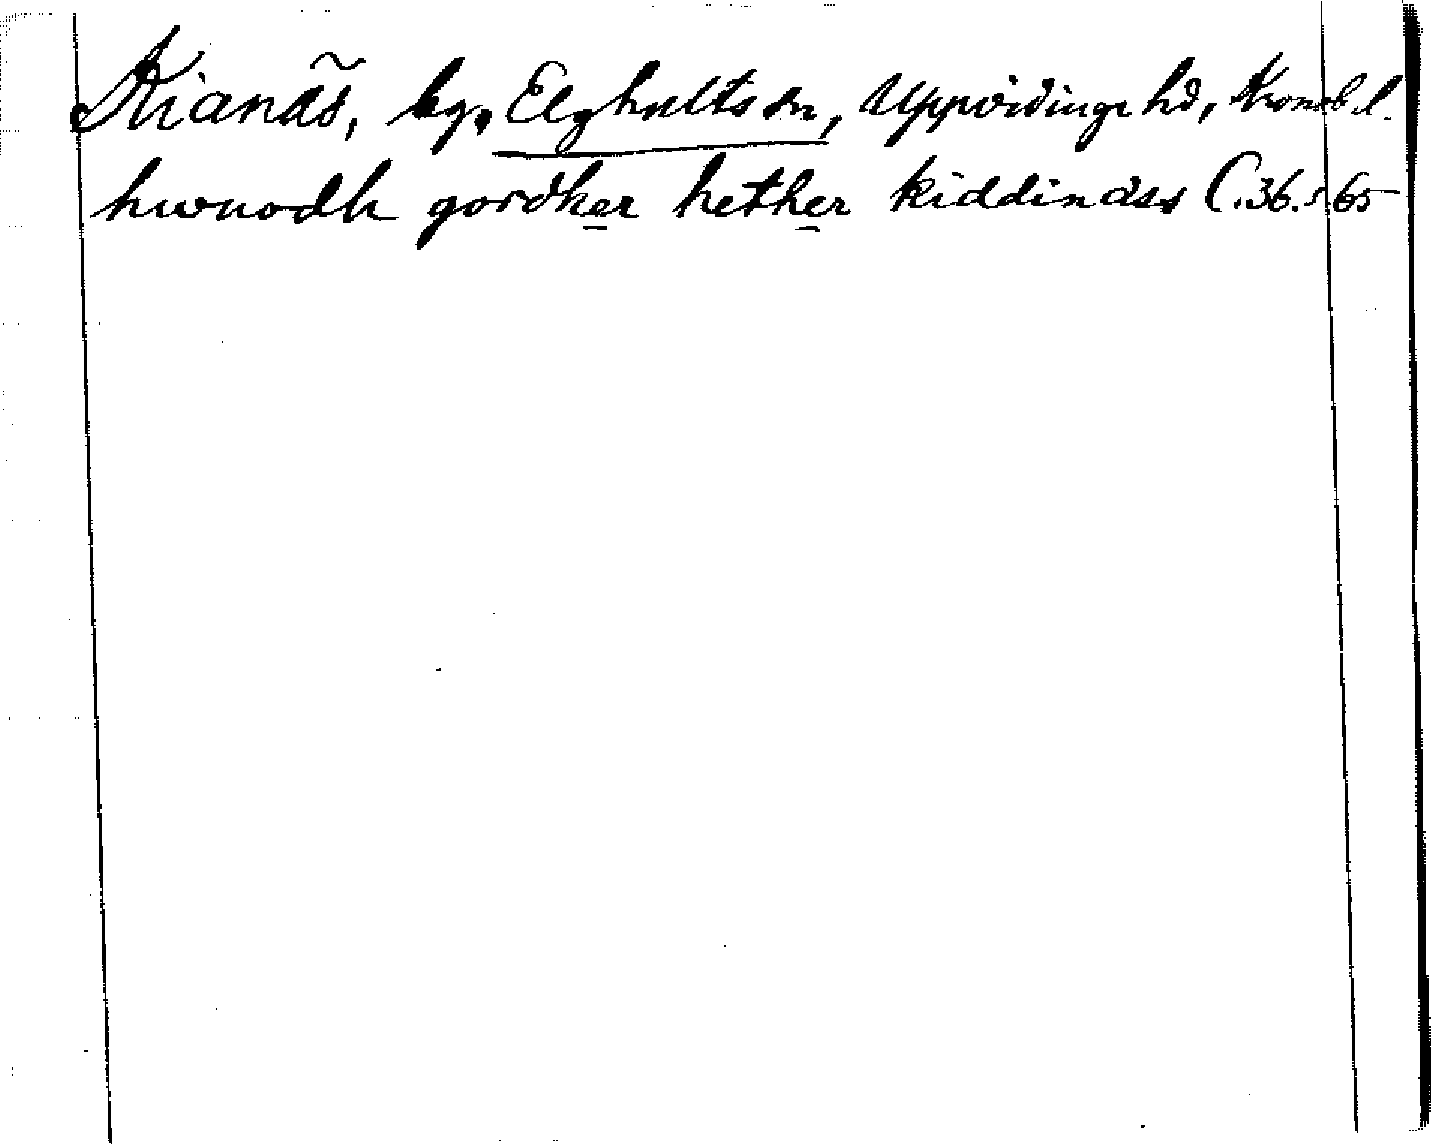 Kianäs, by, Elghults sn, Uppvidinge hd, Kronob l.
hwnodh gordher hether kiddinäss C.36.s 65